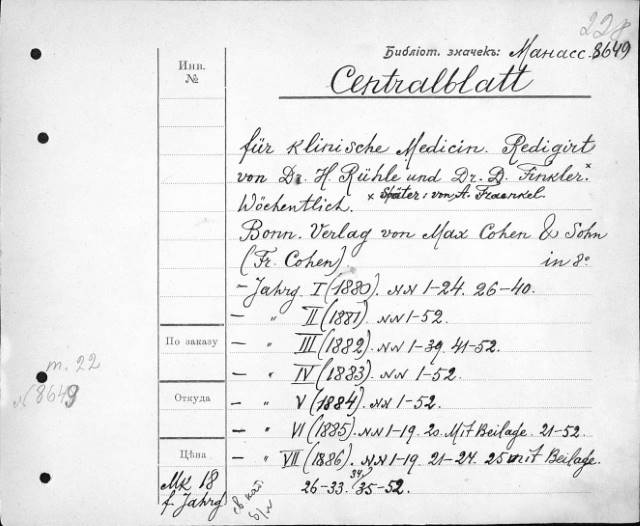 228
Библіот. значекъ: Манасс. 8649
Centralblatt
Инв. №
für klinische Medicin. Redigirt
von Dr. H. Rühle und Dr. D. Finkler.ˣ
Wöchentlich. × Später: von A. Fraenkel.
Bonn. Verlag von Max Cohen & Sohn
(Fr. Cohen). in 8°
– Jahrg. I (1880). NN 1-24. 26-40.
– " II (1881). NN 1-52.
– " III (1882). NN 1-39. 41-52.
– " IV (1883). NN 1-52.
– " V (1884). NN 1-52.
– " VI (1885). NN 1-19. 20. Mit Beilage. 21-52.
– " VII (1886). NN 1-19. 21-24. 25 mit Beilage.
26-33. 34. 35-52.
По заказу
т. 22
N 8649
Откуда
Цѣна
Mk 18
f. Jahrg
св. кат.